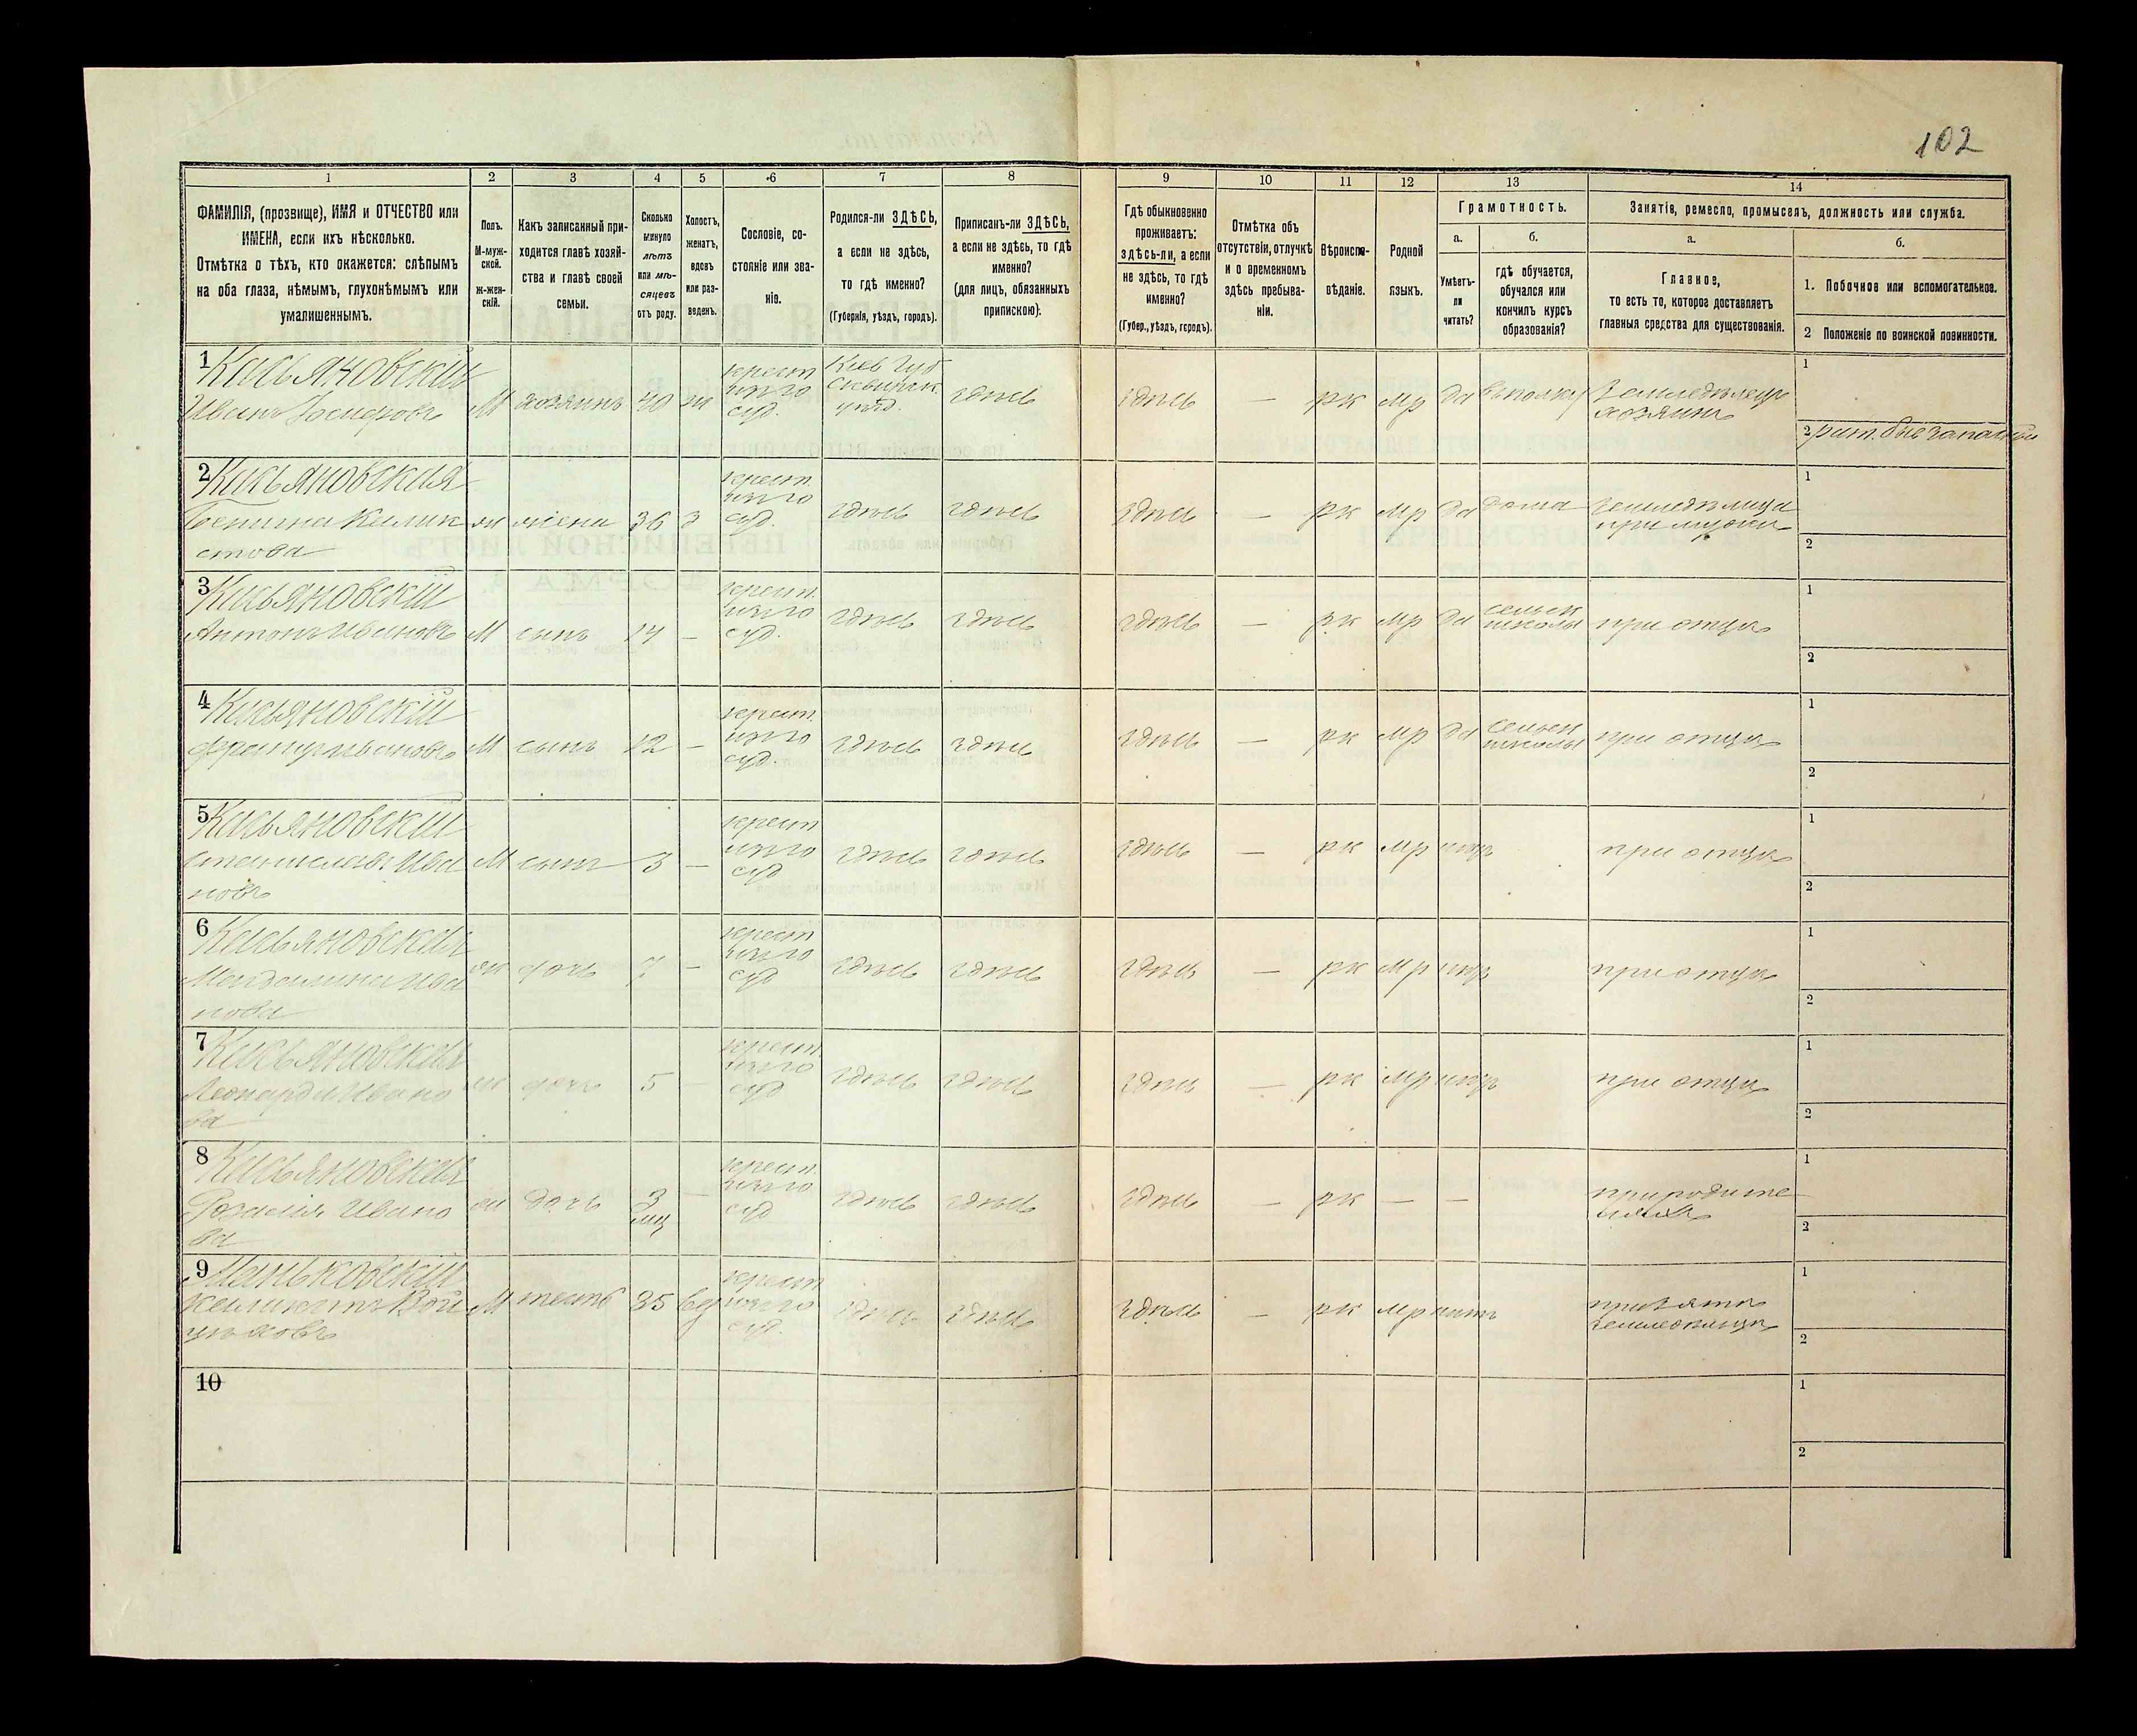 102
1
2
3
4
5
6
7
8
9
10
11
12
13
14
ФАМИЛІЯ, (прозвище), ИМЯ и ОТЧЕСТВО или
ИМЕНА, если ихъ нѣсколько.
Отмѣтка о тѣхъ, кто окажется: слѣпымъ
на оба глаза, нѣмымъ, глухонѣмымъ или
умалишеннымъ.
Полъ.
М-муж-
ской.
ж-жен-
скій.
Какъ записанный при-
ходится главѣ хозяй-
ства и главѣ своей
семьи.
Сколько
минуло
лѣтъ
или мѣ-
сяцевъ
отъ роду.
Холостъ,
женатъ,
вдовъ
или раз-
веденъ.
Сословіе, со-
стояніе или зва-
ніе.
Родился-ли ЗДѢСЬ,
а если не здѣсь,
то гдѣ именно?
(Губернія, уѣздъ, городъ).
Приписанъ-ли ЗДѢСЬ,
а если не здѣсь, то гдѣ
именно?
(для лицъ, обязанныхъ
припискою).
Гдѣ обыкновенно
проживаетъ:
здѣсь-ли, а если
не здѣсь, то гдѣ
именно?
(Губер., уѣздъ, городъ).
Отмѣтка объ
отсутствіи, отлучкѣ
и о временномъ
здѣсь пребыва-
ніи.
Вѣроиспо-
вѣданіе.
Родной
языкъ.
Грамотность.
а.
Умѣетъ-
ли
читать?
б.
гдѣ обучается,
обучался или
кончилъ курсъ
образованія?
Занятіе, ремесло, промыселъ, должность или служба.
а.
Главное,
то есть то, которое доставляетъ
главныя средства для существованія.
б.
1. Побочное или вспомогательное.
2 Положеніе по воинской повинности.
1 Касьяновскій
Иванъ Іосифовъ
М
хозяинъ
40
крест
суд.
Кіев Губ
Сквирск.
уѣзд.
здѣсь
здѣсь
—
рк
мр
да
въ полку
Земледѣлецъ
хозяинъ
1
2
2 Касьяновская
ж
жена
36
з
крест.
суд.
здѣсь
здѣсь
здѣсь
—
рк
мр
да
дома
земледѣлица
при мужѣ
1
2
3 Касьяновскій
Антонъ Ивановъ
М
сынъ
14
—
крест.
суд.
здѣсь
здѣсь
здѣсь
—
рк
мр
да
сельск
школы
при отцѣ
1
2
4 Касьяновскій
Францъ Ивановъ
М
сынъ
12
—
крест.
суд.
здѣсь
здѣсь
здѣсь
—
рк
мр
да
сельск
школы
при отцѣ
1
2
5 Касьяновскій
Станиславъ Ива
новъ
М
сынъ
3
—
крест
суд
здѣсь
здѣсь
здѣсь
—
рк
мр
при отцѣ
1
2
6 Касьяновская
Магдалина Ива
нова
ж
дочь
7
—
крест
суд
здѣсь
здѣсь
здѣсь
—
рк
мр
при отцѣ
1
2
7 Касьяновская
Леонарда Ивано
ва
ж
дочь
5
крест.
суд
здѣсь
здѣсь
здѣсь
—
рк
мр
при отцѣ
1
2
8 Касьяновская
Розалія Ивано
ва
ж
дочь
3
мц
—
крест.
суд
здѣсь
здѣсь
здѣсь
—
рк
—
—
при родите
ляхъ
1
2
9 Маньковскій
М
тесть
вд
крест
суд.
здѣсь
здѣсь
здѣсь
—
рк
мр
нѣтъ
при зятѣ
земледѣлецъ
1
2
10
1
2